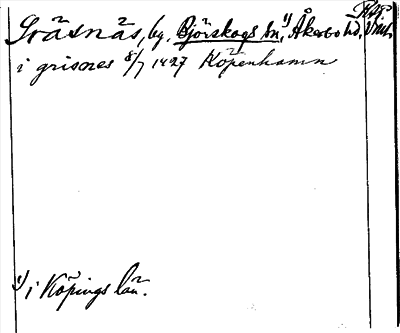 Gräsnäs, by, Björskogs sn,¹⁾ Åkerbo hd, Vstm.
i grisnes 8/7 1427 Köpenhamn
¹⁾ i Köpings län.